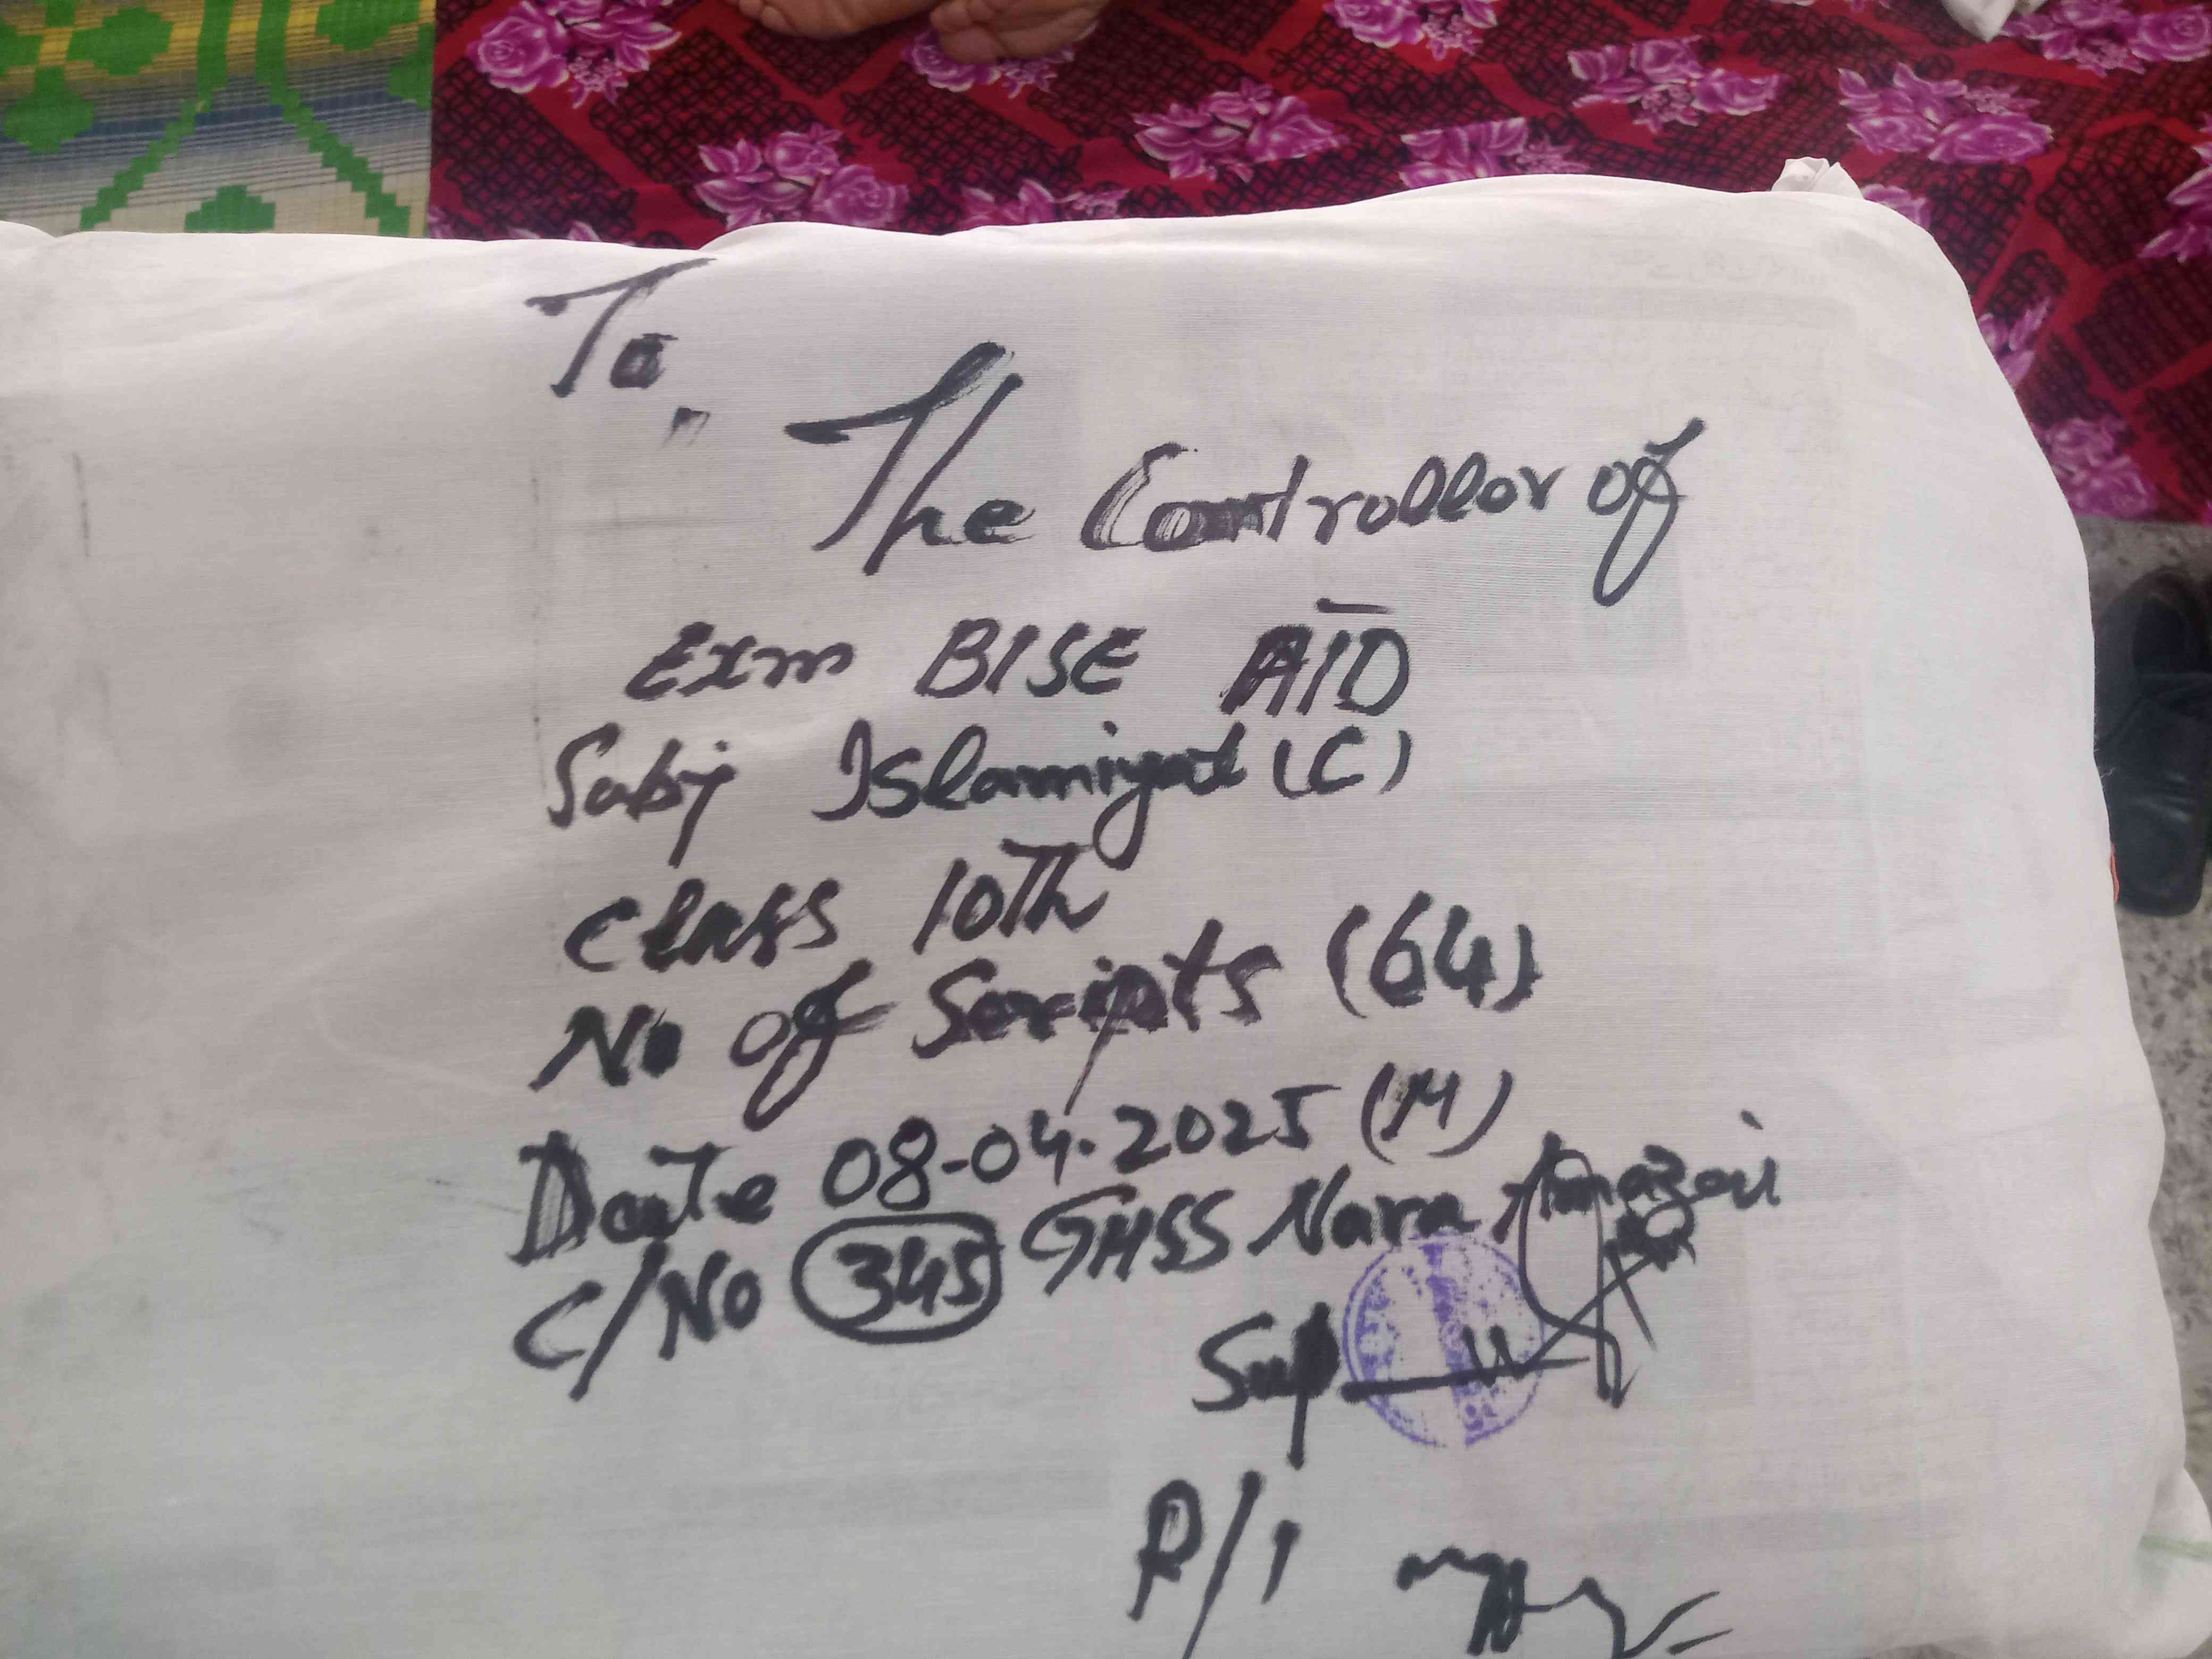 To,
The Controllor of
Exm BISE ATD
Subj Islamiyat (C)
Class 10Th
No of Scripts (64)
Date 08-04-2025 (M)
C/No 345 GHSS Nara Amazai
Sup
R/I